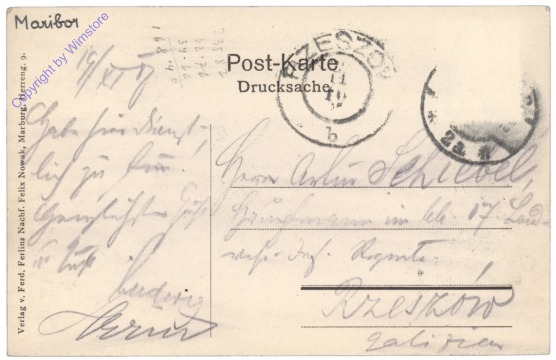 Maribor
Copyright by Wimstore
Post-Karte
Drucksache.
RZESZÓW
b
19/XI 07
Habe hier dienst-
lich zu tun.
Herzlichsten Gruß
Ludwig
Herrn Artur Schiebel,
Hauptmann im kk. 17. Land-
wehr-Inf. Regmte.
Rzeszów
Galizien
Verlag v. Ferd. Ferlinz Nachf. Felix Nowak, Marburg, Herreng. 9.